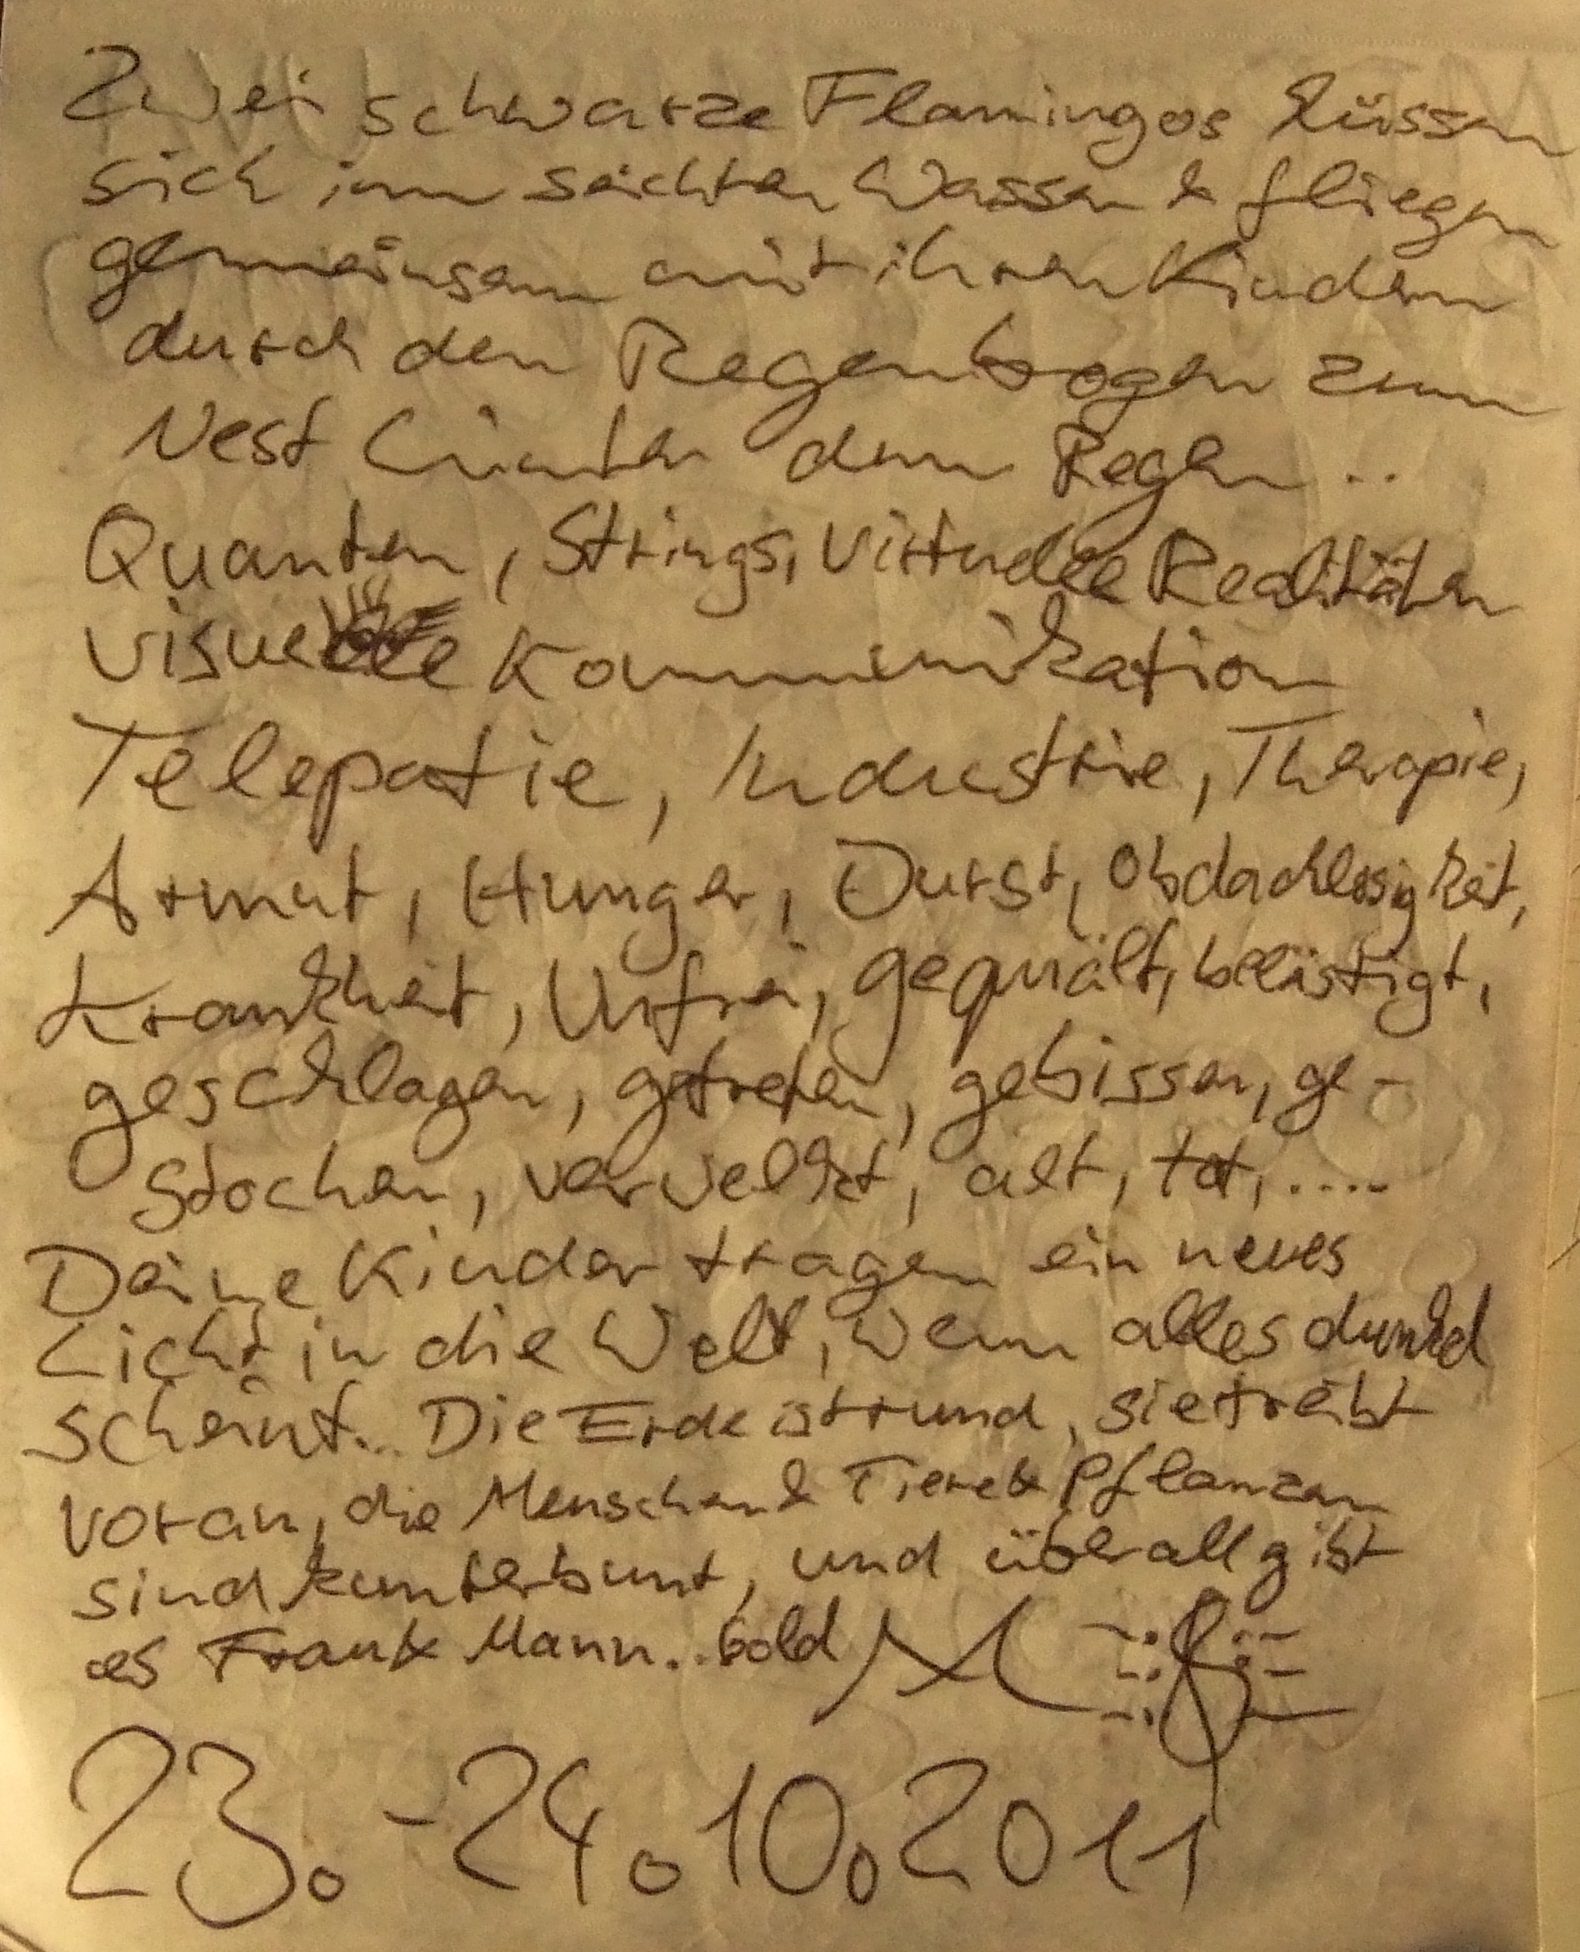 Zwei schwarze Flamingos küssen
sich im seichten Wasser & fliegen
gemeinsam mit ihren Kindern
durch den Regenbogen zum
Nest hinter dem Regen ..
Quanten, Strings, Virtuelle Realitäten
visuelle Kommunikation
Telepatie, Industrie, Therapie,
Armut, Hunger, Durst, Obdachlosigkeit,
Krankheit, Unfrei, gequält, belästigt,
geschlagen, getreten, gebissen, ge-
stochen, verwelkt, alt, tot, .....
Deine Kinder tragen ein neues
Licht in die Welt, wenn alles dunkel
scheint... Die Erde ist rund, sie treibt
voran, die Menschen & Tiere & Pflanzen
sind kunterbunt, und überall gibt
es Frank Mann.. bold
23. - 24. 10. 2011